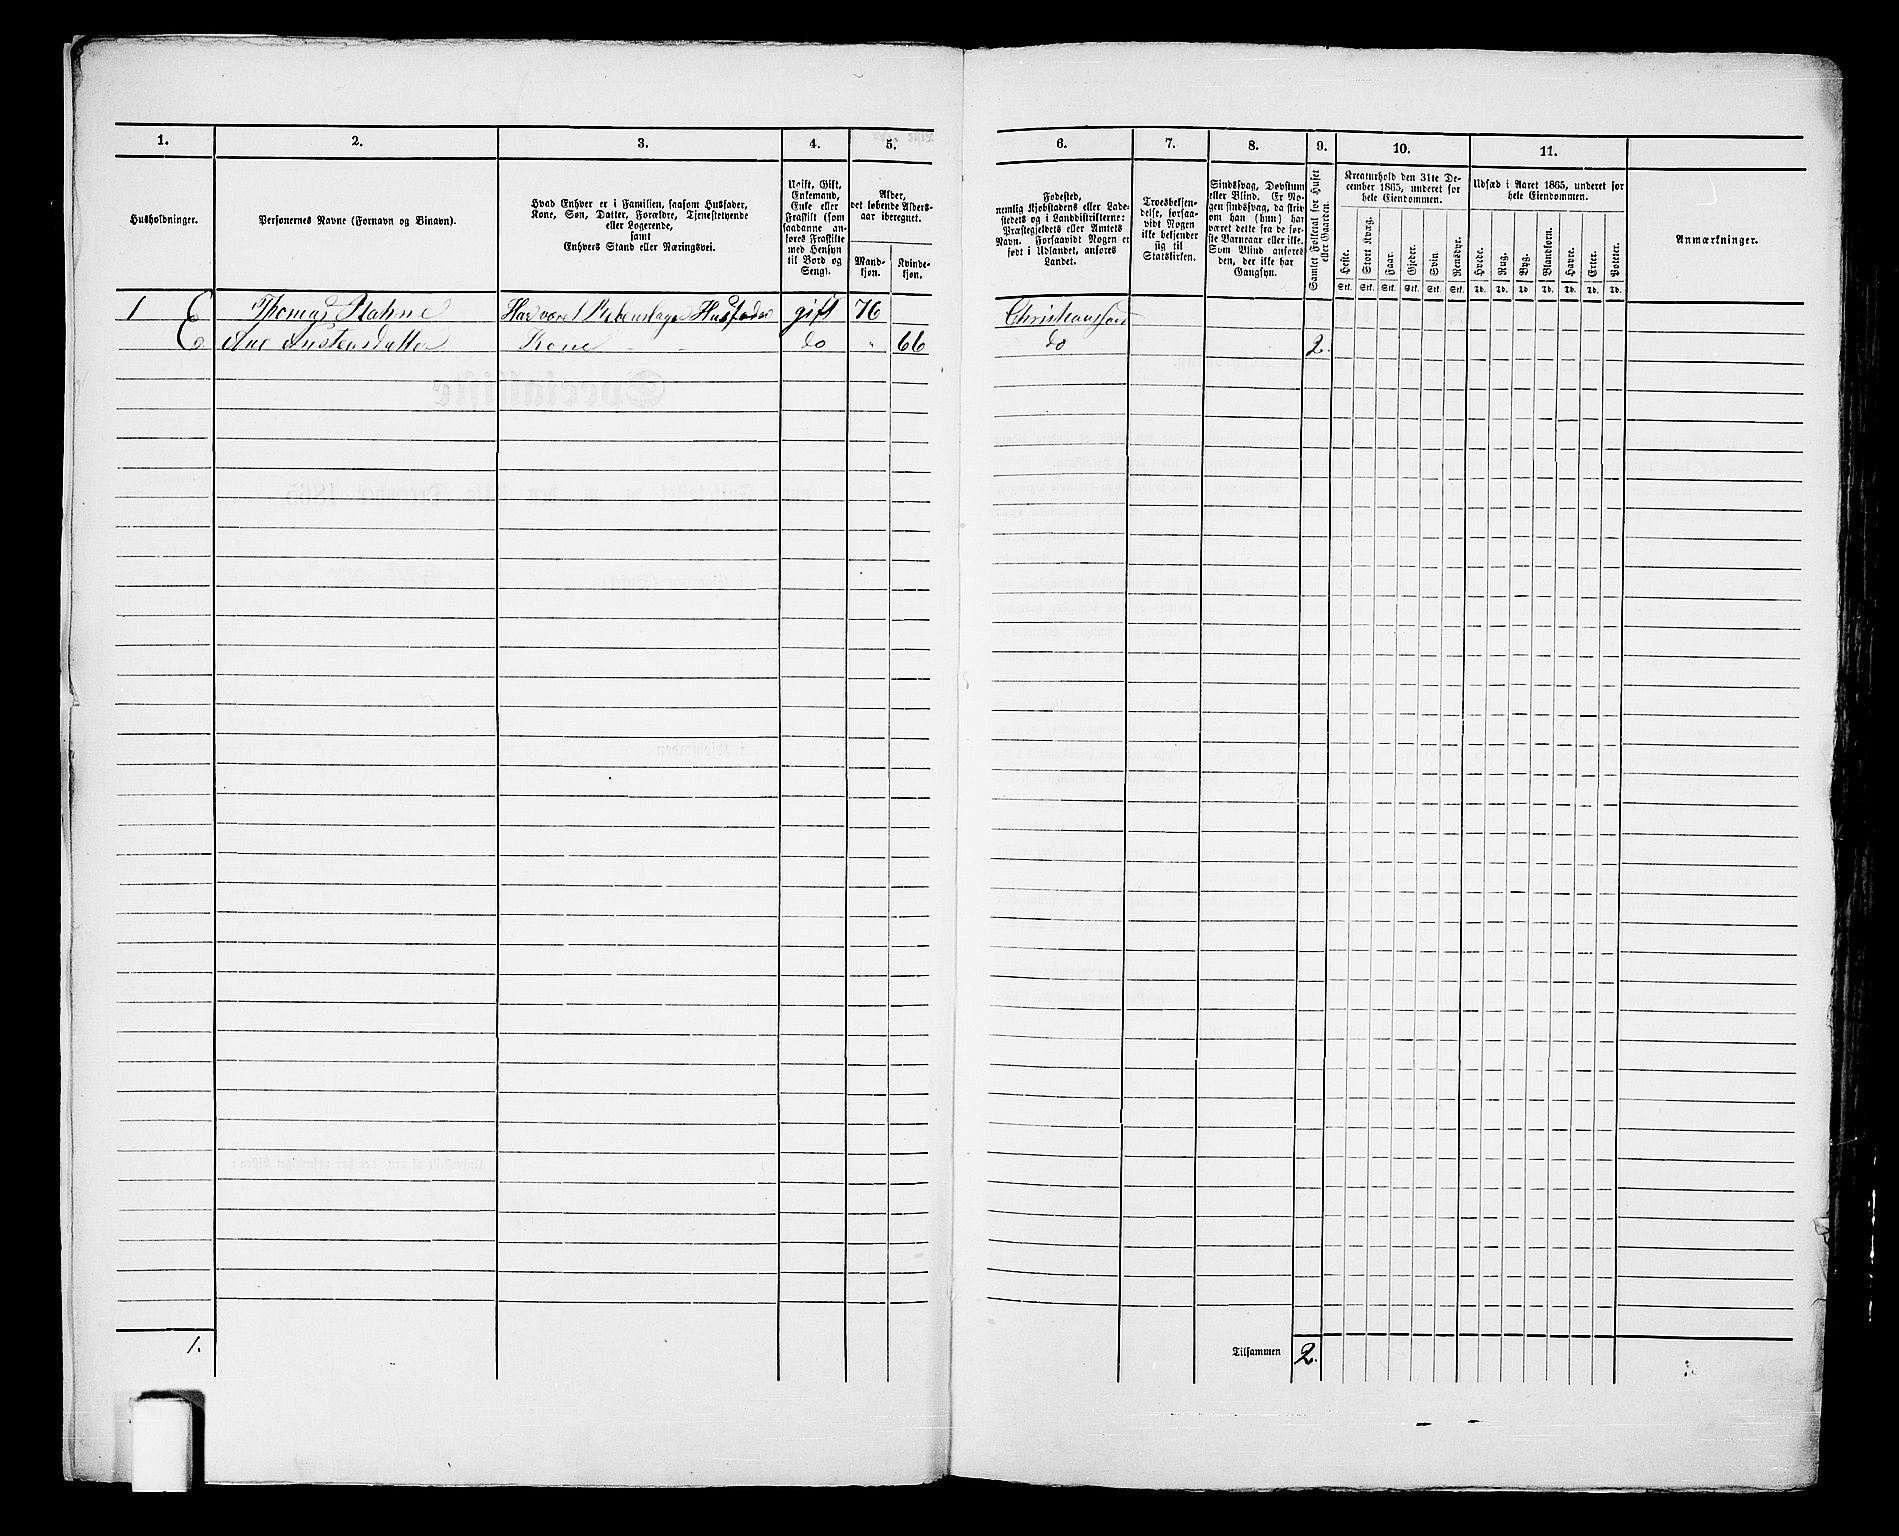 1.
2.
3.
4.
5.
Husholdninger.
Personernes Navne (Fornavn og Binavn).
Hvad Enhver er i Familien, saasom Husfader,
Kone, Søn, Datter, Forældre, Tjenestetyende
eller Logerende,
samt
Enhvers Stand eller Næringsvei.
Ugift, Gift,
Enkemand,
Enke eller
Fraskilt (som
saadanne an-
føres Fraskilte
med Hensyn
til Bord og
Seng).
Alder,
det løbende Alders-
aar iberegnet.
Mand-
kjøn.
Kvinde-
kjøn.
1 E Thomas Rahne Har været Rebenslager Husfader gift 76
E Ane Austensdatter Kone do " 66
1.
6.
7.
8.
9.
10.
11.
Fødested,
nemlig Kjøbstadens eller Lade-
stedets og i Landdistrikterne:
Præstegjeldets eller Amtets
Navn. Forsaavidt Nogen er
født i Udlandet, anføres
Landet.
Troesbekjen-
delse, forsaa-
vidt Nogen
ikke bekjender
sig til
Statskirken.
Sindssvag, Døvstum
eller Blind. Er No-
gen sindssvag, da skriv
om han (hun) har
været dette fra de før-
ste Barneaar eller ikke.
Som Blind anføres
den, der ikke har
Gangsyn.
Samlet Folketal for Huset
eller Gaarden.
Kreaturhold den 31te De-
cember 1865, underet for
hele Eiendommen.
Heste. Stort Kvæg. Faar. Gjeder. Svin. Rensdyr.
Stk. Stk. Stk. Stk. Stk. Stk.
Udsæd i Aaret 1865, underet for
hele Eiendommen.
Hvede. Rug. Byg. Blandkorn. Havre. Erter. Poteter.
Td. Td. Td. Td. Td. Td. Td.
Anmærkninger.
Christianssand
do 2.
Tilsammen 2.